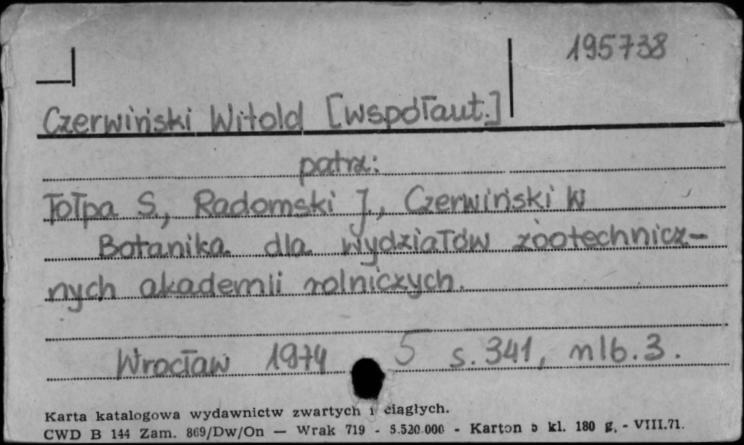 195738
Czerwiński Witold [współaut.]
patrz:
Tołpa S., Radomski J., Czerwiński W
Botanika dla wydziałów zootechnicz-
nych akademii rolniczych.
Wrocław 1974 5 s. 341, nlb. 3.
Karta katalogowa wydawnictw zwartych i ciągłych.
CWD B 144 Zam. 869/Dw/On — Wrak 719 - 5.520.000 - Karton kl. 180 g. - VIII.71.